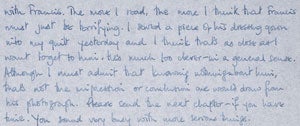 with Francis. The more I read, the more I think that Francis
must just be horrifying. I sewed a piece of his dressing gown
into my quilt yesterday and I think that's as close as I
want to get to him: he's much too clever - in a general sense.
Although I must admit that knowing all about him,
that's not the impression or conclusion one would draw from
his photograph. Please send the next chapter - if you have
time. You sound very busy with more serious things.